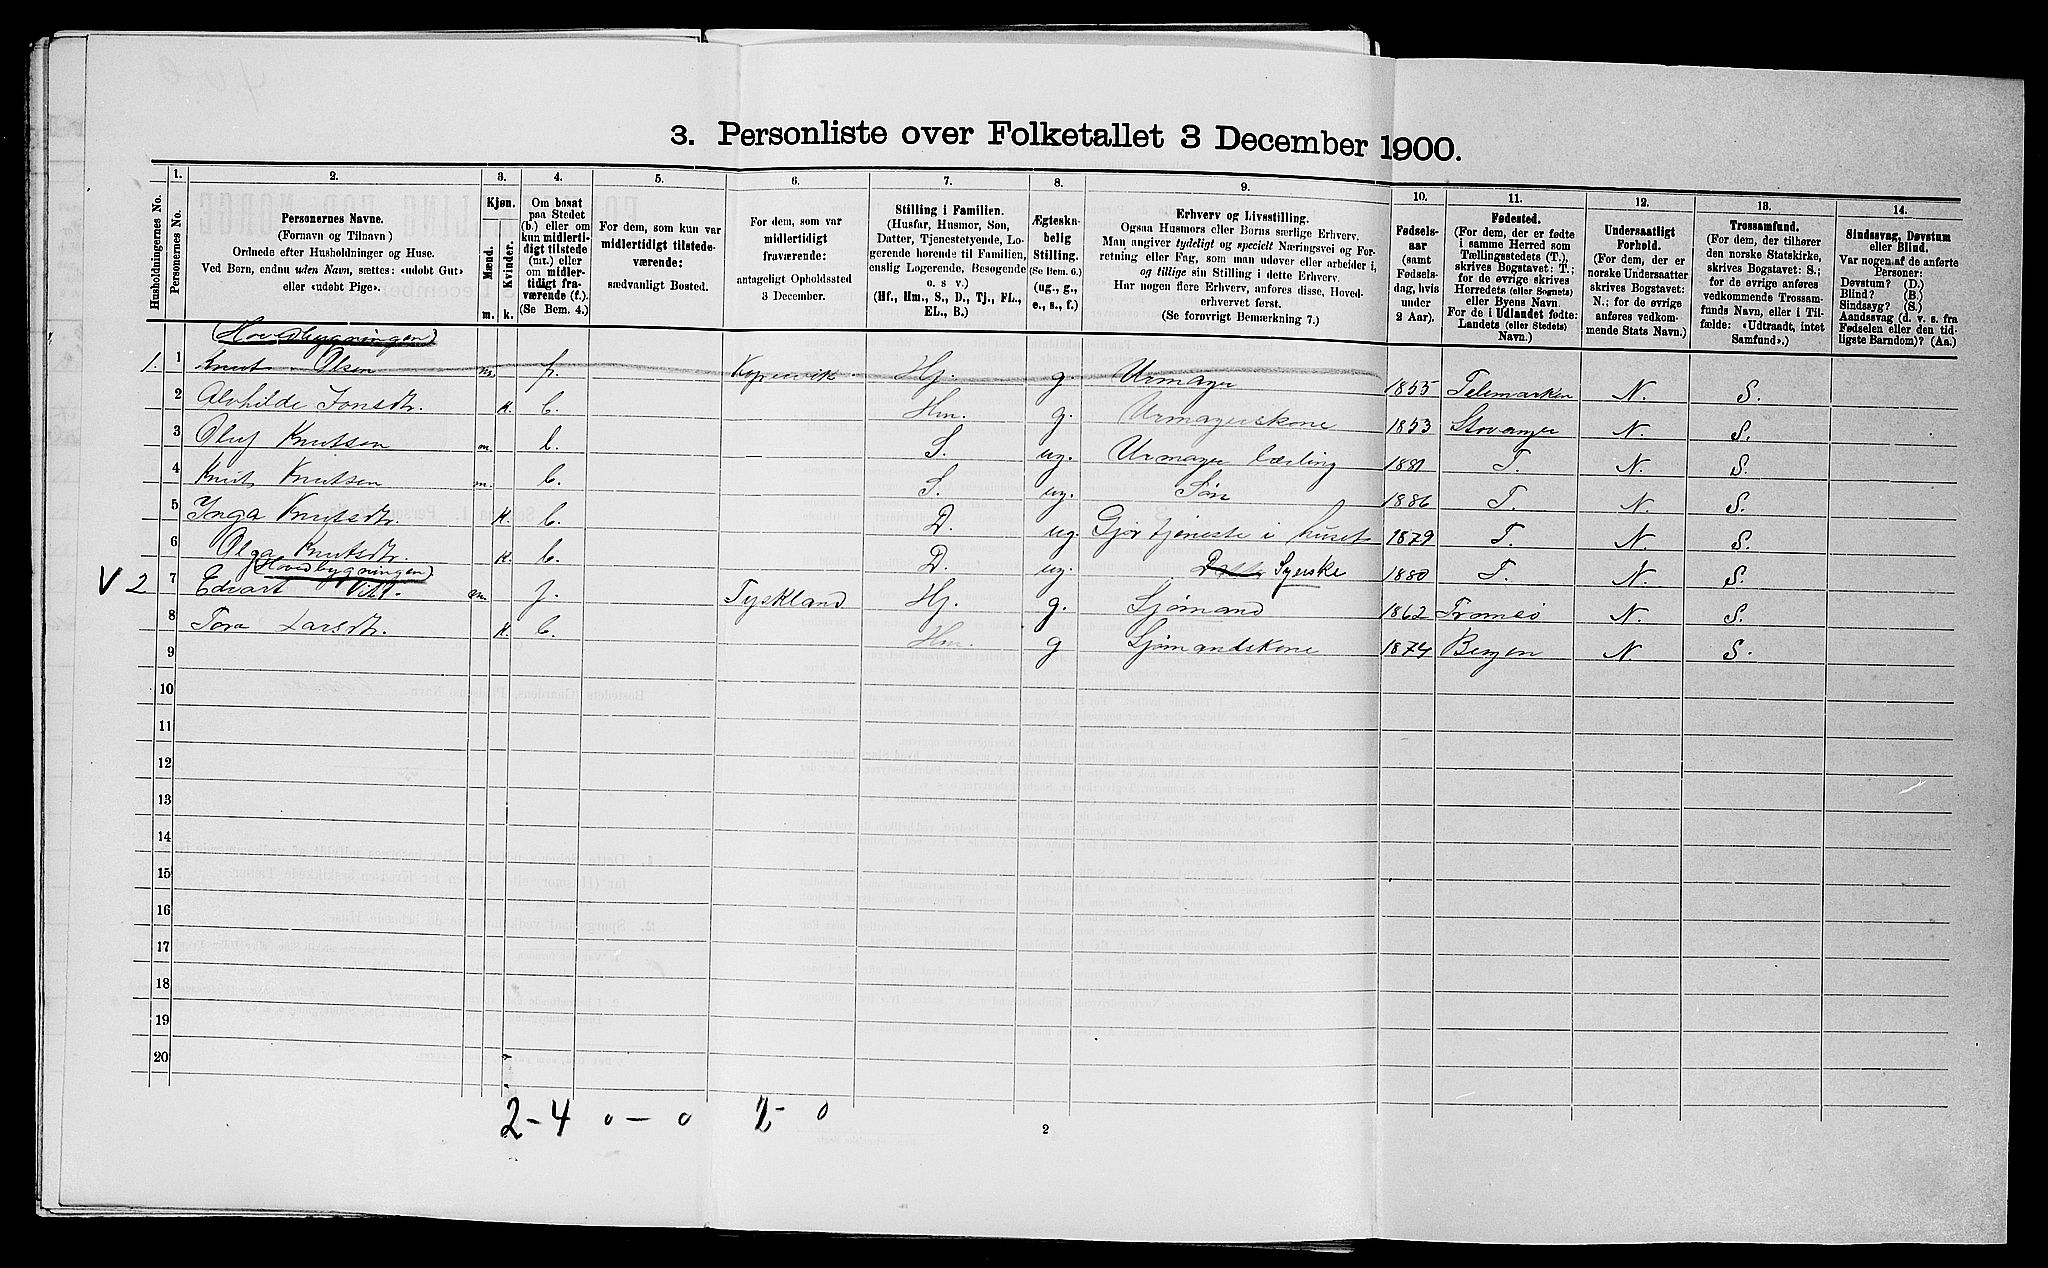 3. Personliste over Folketallet 3 December 1900.
Husholdningernes No.
1.
Personernes No.
2.
Personernes Navne.
(Fornavn og Tilnavn)
Ordnede efter Husholdninger og Huse.
Ved Børn, endnu uden Navn, sættes: «udøbt Gut»
eller «udøbt Pige».
3.
Kjøn.
Mænd.
Kvinder.
m. k.
4.
Om bosat
paa Stedet
(b.) eller om
kun midlerti-
digt tilstede
(mt.) eller
om midler-
tidigt fra-
værende (f.).
(Se Bem. 4.)
5.
For dem, som kun var
midlertidigt tilstede-
værende:
sædvanligt Bosted.
6.
For dem, som var
midlertidigt
fraværende:
antageligt Opholdssted
3 December.
7.
Stilling i Familien.
(Husfar, Husmor, Søn,
Datter, Tjenestetyende, Lo-
gerende hørende til Familien,
enslig Logerende, Besøgende
o. s v.)
(Hf., Hm., S., D., Tj., FL.,
EL., B.)
8.
Ægteska-
belig
Stilling.
(Se Bem. 6.)
(ug., g.,
e., s., f.)
9.
Erhverv og Livsstilling.
Ogsaa Husmors eller Børns særlige Erhverv.
Man angiver tydeligt og specielt Næringsvei og For-
retning eller Fag, som man udøver eller arbeider i,
og tillige sin Stilling i dette Erhverv.
Har nogen flere Erhverv, anføres disse, Hoved-
erhvervet først.
(Se forøvrigt Bemærkning 7.)
10.
Fødsels-
aar
(samt
Fødsels-
dag, hvis
under
2 Aar).
11.
Fødested.
(For dem, der er fødte
i samme Herred som
Tællingsstedets (T.),
skrives Bogstavet: T.;
for de øvrige skrives
Herredets (eller Sognets)
eller Byens Navn.
For de i Udlandet fødte:
Landets (eller Stedets)
Navn.)
12.
Undersaatligt
Forhold.
(For dem, der er
norske Undersaatter
skrives Bogstavet:
N.; for de øvrige
anføres vedkom-
mende Stats Navn.)
13.
Trossamfund.
(For dem, der tilhører
den norske Statskirke,
skrives Bogstavet: S.;
for de øvrige anføres
vedkommende Trossam-
funds Navn, eller i Til-
fælde: «Udtraadt, intet
Samfund».)
14.
Sindssvag, Døvstum
eller Blind.
Var nogen af de anførte
Personer:
Døvstum? (D.)
Blind? (B.)
Sindssyg? (S.)
Aandssvag (d. v. s. fra
Fødselen eller den tid-
ligste Barndom)? (Aa.)
(Hovedbygningen)
1. 1 Knut Olsen m. f. Kopervik Hf. g. Urmager 1855 Telemarken N. S.
2 Alvhilde Jonsdtr. k. b. Hm. g. Urmagerskone 1853 Stavanger N. S.
3 Oluf Knutsen m. b. — S. ug. Urmager Lærling 1881 T. N. S.
4 Knut Knutsen m. b. S. ug. Søn 1886 T. N. S.
5 Inga Knutsdtr. k. b. D. ug. Gjør tjeneste i huset 1879 T. N. S.
6 Olga Knutsdtr. k. b. D. ug. Syerske 1880 T. N. S.
(Hovedbygningen)
V 2 7 Edvart Vitt. m. f. Tyskland Hf. g. Sjømand 1862 Tromsø N. S.
8 Tora Larsdtr. k. b. Hm. g Sjømandskone 1874 Bergen N. S.
9
10
11
12
13
14
15
16
17
18
19
20
2-4 0-0 2-0
2